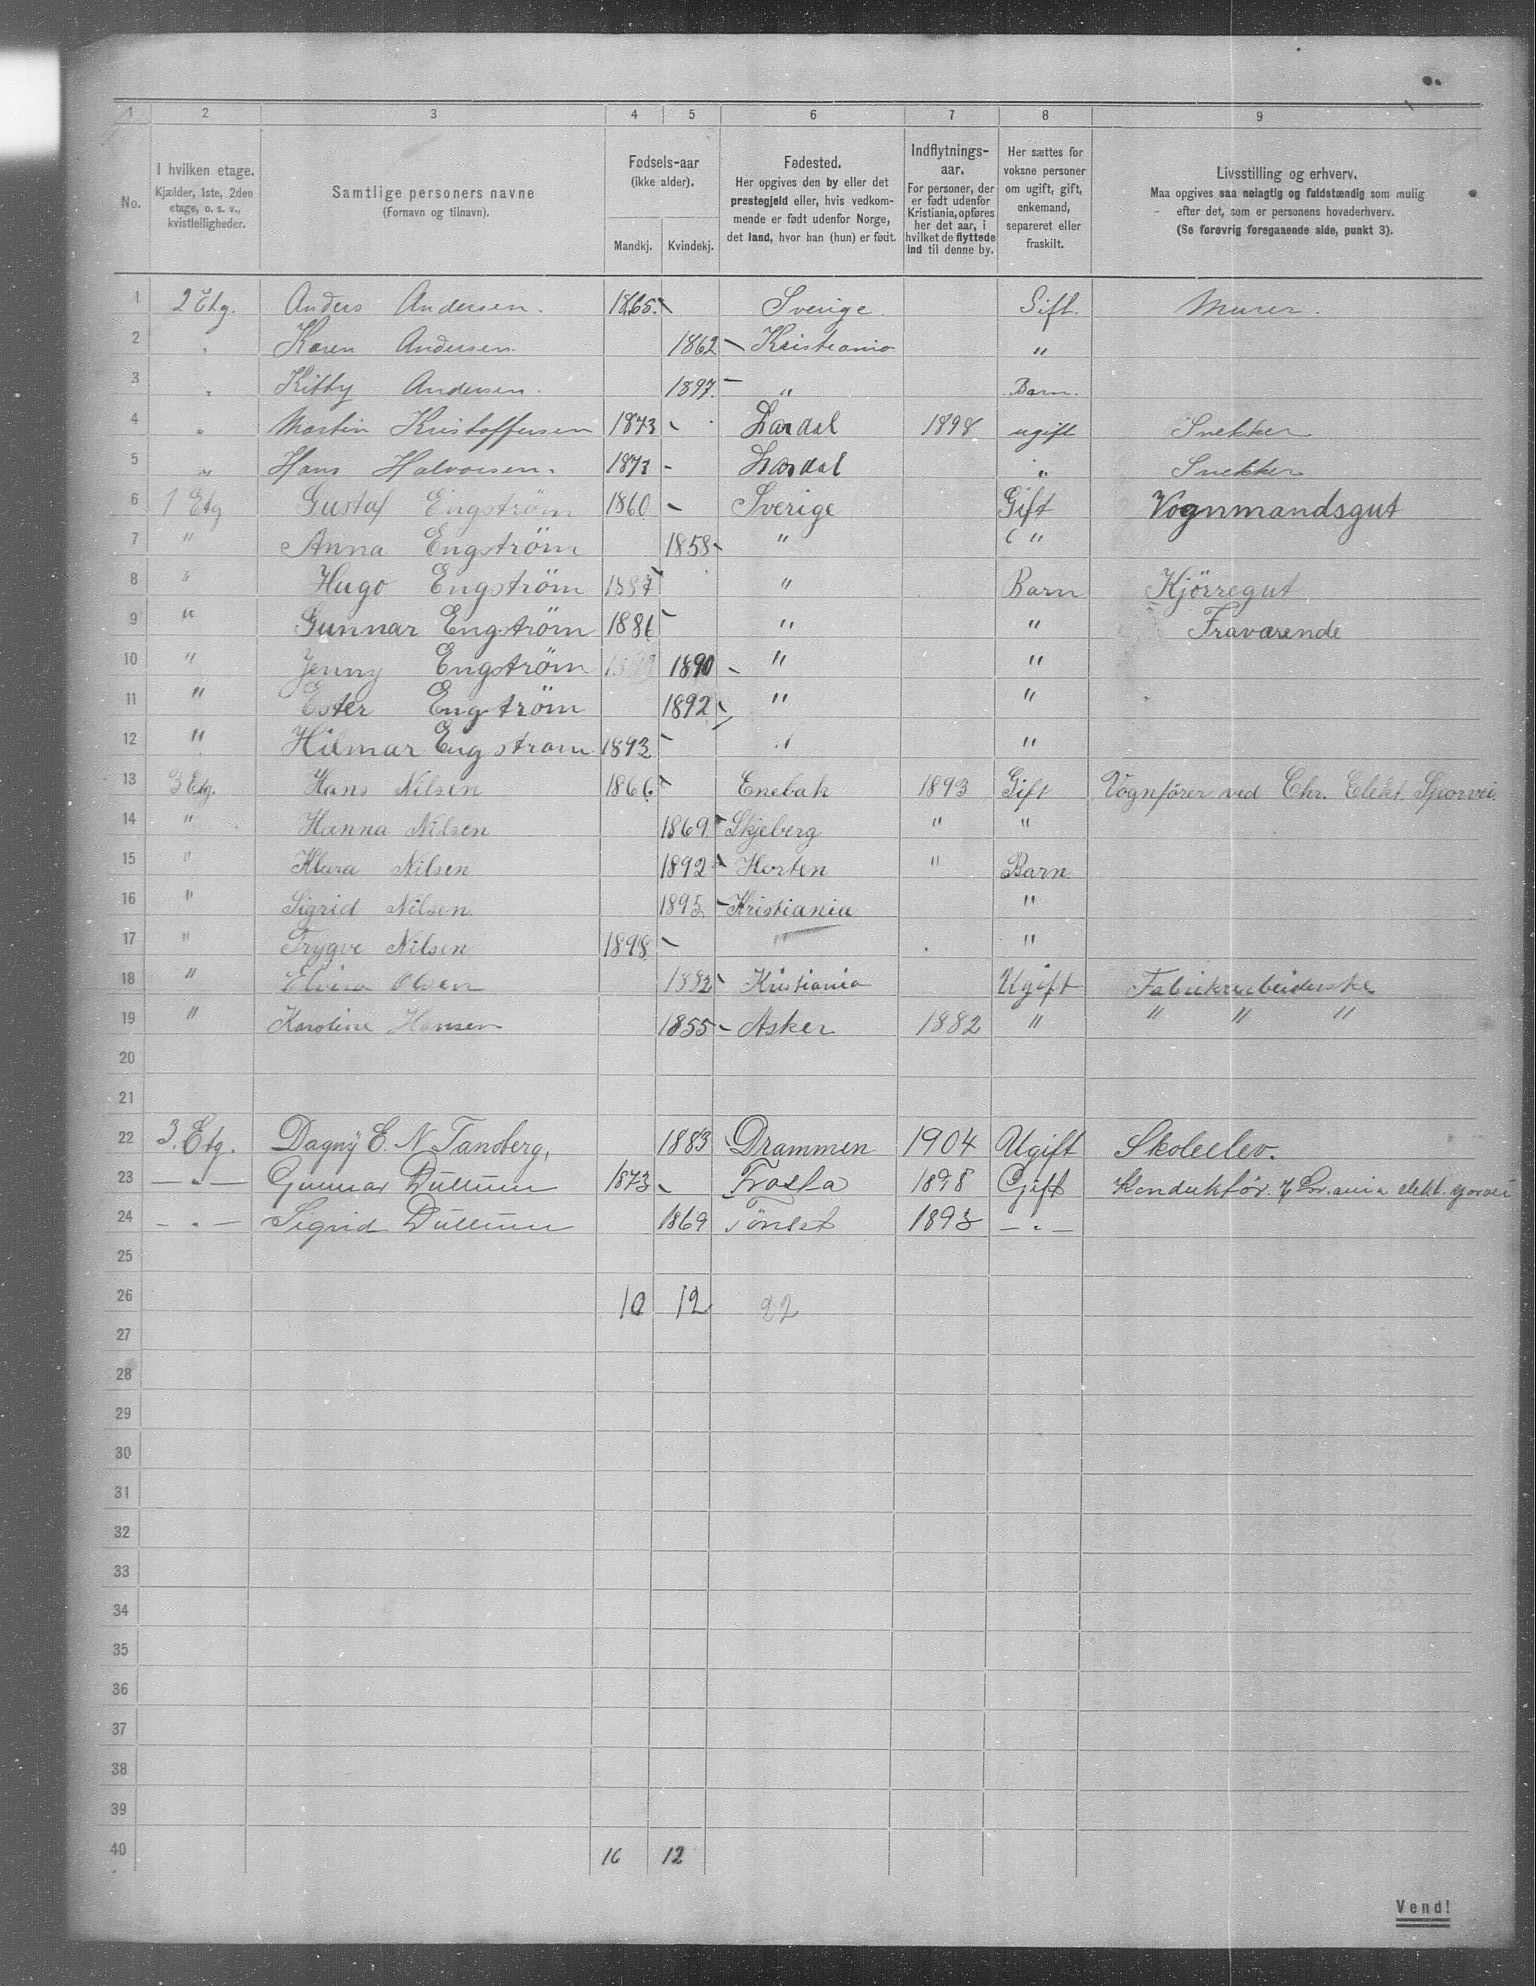 1 2 3 4 5 6 7 8 9
No. I hvilken etage. Kjælder, 1ste, 2den etage, o. s. v., kvistleiligheder. Samtlige personers navne (Fornavn og tilnavn). Fødsels-aar (ikke alder). Mandkj. Kvindekj. Fødested. Her opgives den by eller det prestegjeld eller, hvis vedkommende er født udenfor Norge, det land, hvor han (hun) er født. Indflytnings-aar. For personer, der er født udenfor Kristiania, opføres her det aar, i hvilket de flyttede ind til denne by. Her sættes for voksne personer om ugift, gift, enkemand, separeret eller fraskilt. Livsstilling og erhverv. Maa opgives saa nøiagtig og fuldstændig som mulig efter det, som er personens hovederhverv. (Se forøvrig foregaaende side, punkt 3).
1 2 Etg. Anders Andersen. 1865. Sverige. Gift. Murer.
2 " Karen Andersen. 1862 Kristiania "
3 " Kitty Andersen. 1897. " Barn.
4 " Martin Kristoffersen 1873 Lardal 1898 ugift Snekker
5 " Hans Halvorsen. 1873 Lardal " Snekker
6 1 Etg Gustaf Engström 1860 Sverige Gift Vognmandsgut
7 " Anna Engström 1858 " "
8 " Hugo Engström 1887 " Barn Kjörregut
9 " Gunnar Engström 1886 " " Fraværende
10 " Jenny Engström 1890 " "
11 " Ester Engström 1892 " "
12 " Hilmar Engstrom 1893 " "
13 3 Etg. Hans Nilsen 1866 Enebak 1893 Gift Vognförer ved Chr. Elekt. Sporvei.
14 " Hanna Nilsen 1869 Skjeberg " "
15 " Klara Nilsen 1892 Horten " Barn
16 " Sigrid Nilsen 1895 Kristiania "
17 " Trygve Nilsen 1898 " "
18 " Elvira Olsen 1882 Kristiania Ugift Fabrikarbeiderske
19 " Karoline Hansen 1855 Asker 1882 " " " "
20
21
22 3. Etg. Dagny E. N Tandberg, 1883 Drammen 1904 Ugift Skoleelev.
23 — " — Gunnar Dullum 1873 Frosta 1898 Gift Konduktör. elekt. sporvei
24 — " — Sigrid Dullum 1869 Tönset 1893 — " —
25
26 10 12 22
27
28
29
30
31
32
33
34
35
36
37
38
39
40 16 12
Vend!